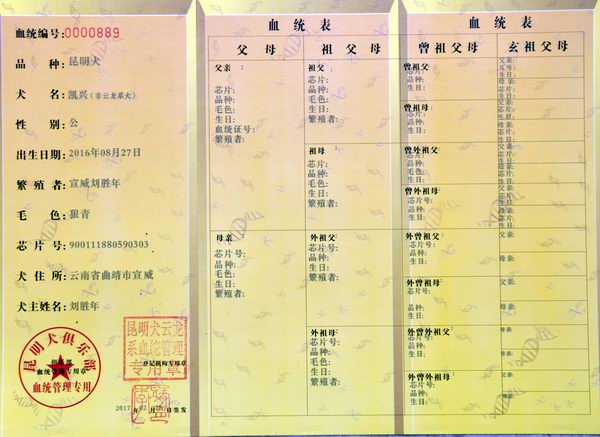 血统编号:0000889
品 种:昆明犬
犬 名:凯兴(非云龙系犬)
性 别:公
出生日期:2016年08月27日
繁 殖 者:宣威刘胜年
毛 色:狼青
芯 片 号:900111880590303
犬 住 所:云南省曲靖市宣威
犬主姓名:刘胜年
昆明犬俱乐部
血统管理专用章
血统管理专用
昆明犬云龙
系血统管理
专用章
登记机构专用章
2017 年 02 月 日签发
血 统 表
父 母
父亲:
芯片:
品种:
毛色:
生日:
血统证号:
繁殖者:
母亲:
芯片号:
品种:
毛色:
生日:
繁殖者:
祖 父 母
祖父:
芯片:
品种:
毛色:
生日:
繁殖者:
祖母:
芯片:
品种:
毛色:
生日:
繁殖者:
外祖父:
芯片号:
品种:
毛色:
生日:
繁殖者:
外祖母:
芯片号:
品种:
毛色:
生日:
繁殖者:
血 统 表
曾祖父母
曾祖父:
芯片:
品种:
生日:
曾祖母:
芯片:
品种:
生日:
曾外祖父:
芯片:
品种:
毛色:
生日:
曾外祖母:
芯片号:
品种:
生日:
外曾祖父:
芯片号:
品种:
生日:
外曾祖母:
芯片号:
品种:
生日:
外曾外祖父:
芯片号:
品种:
生日:
外曾外祖母:
芯片号:
品种:
生日:
玄祖父母
父亲:
耳号:
生日:
母亲:
芯片:
生日:
父亲:
生日:
母亲:
生日:
父亲:
芯片:
生日:
母亲:
芯片:
生日:
父亲:
生日:
母亲:
生日:
父亲:
母亲:
父亲:
母亲:
父亲:
母亲:
父亲:
母亲: